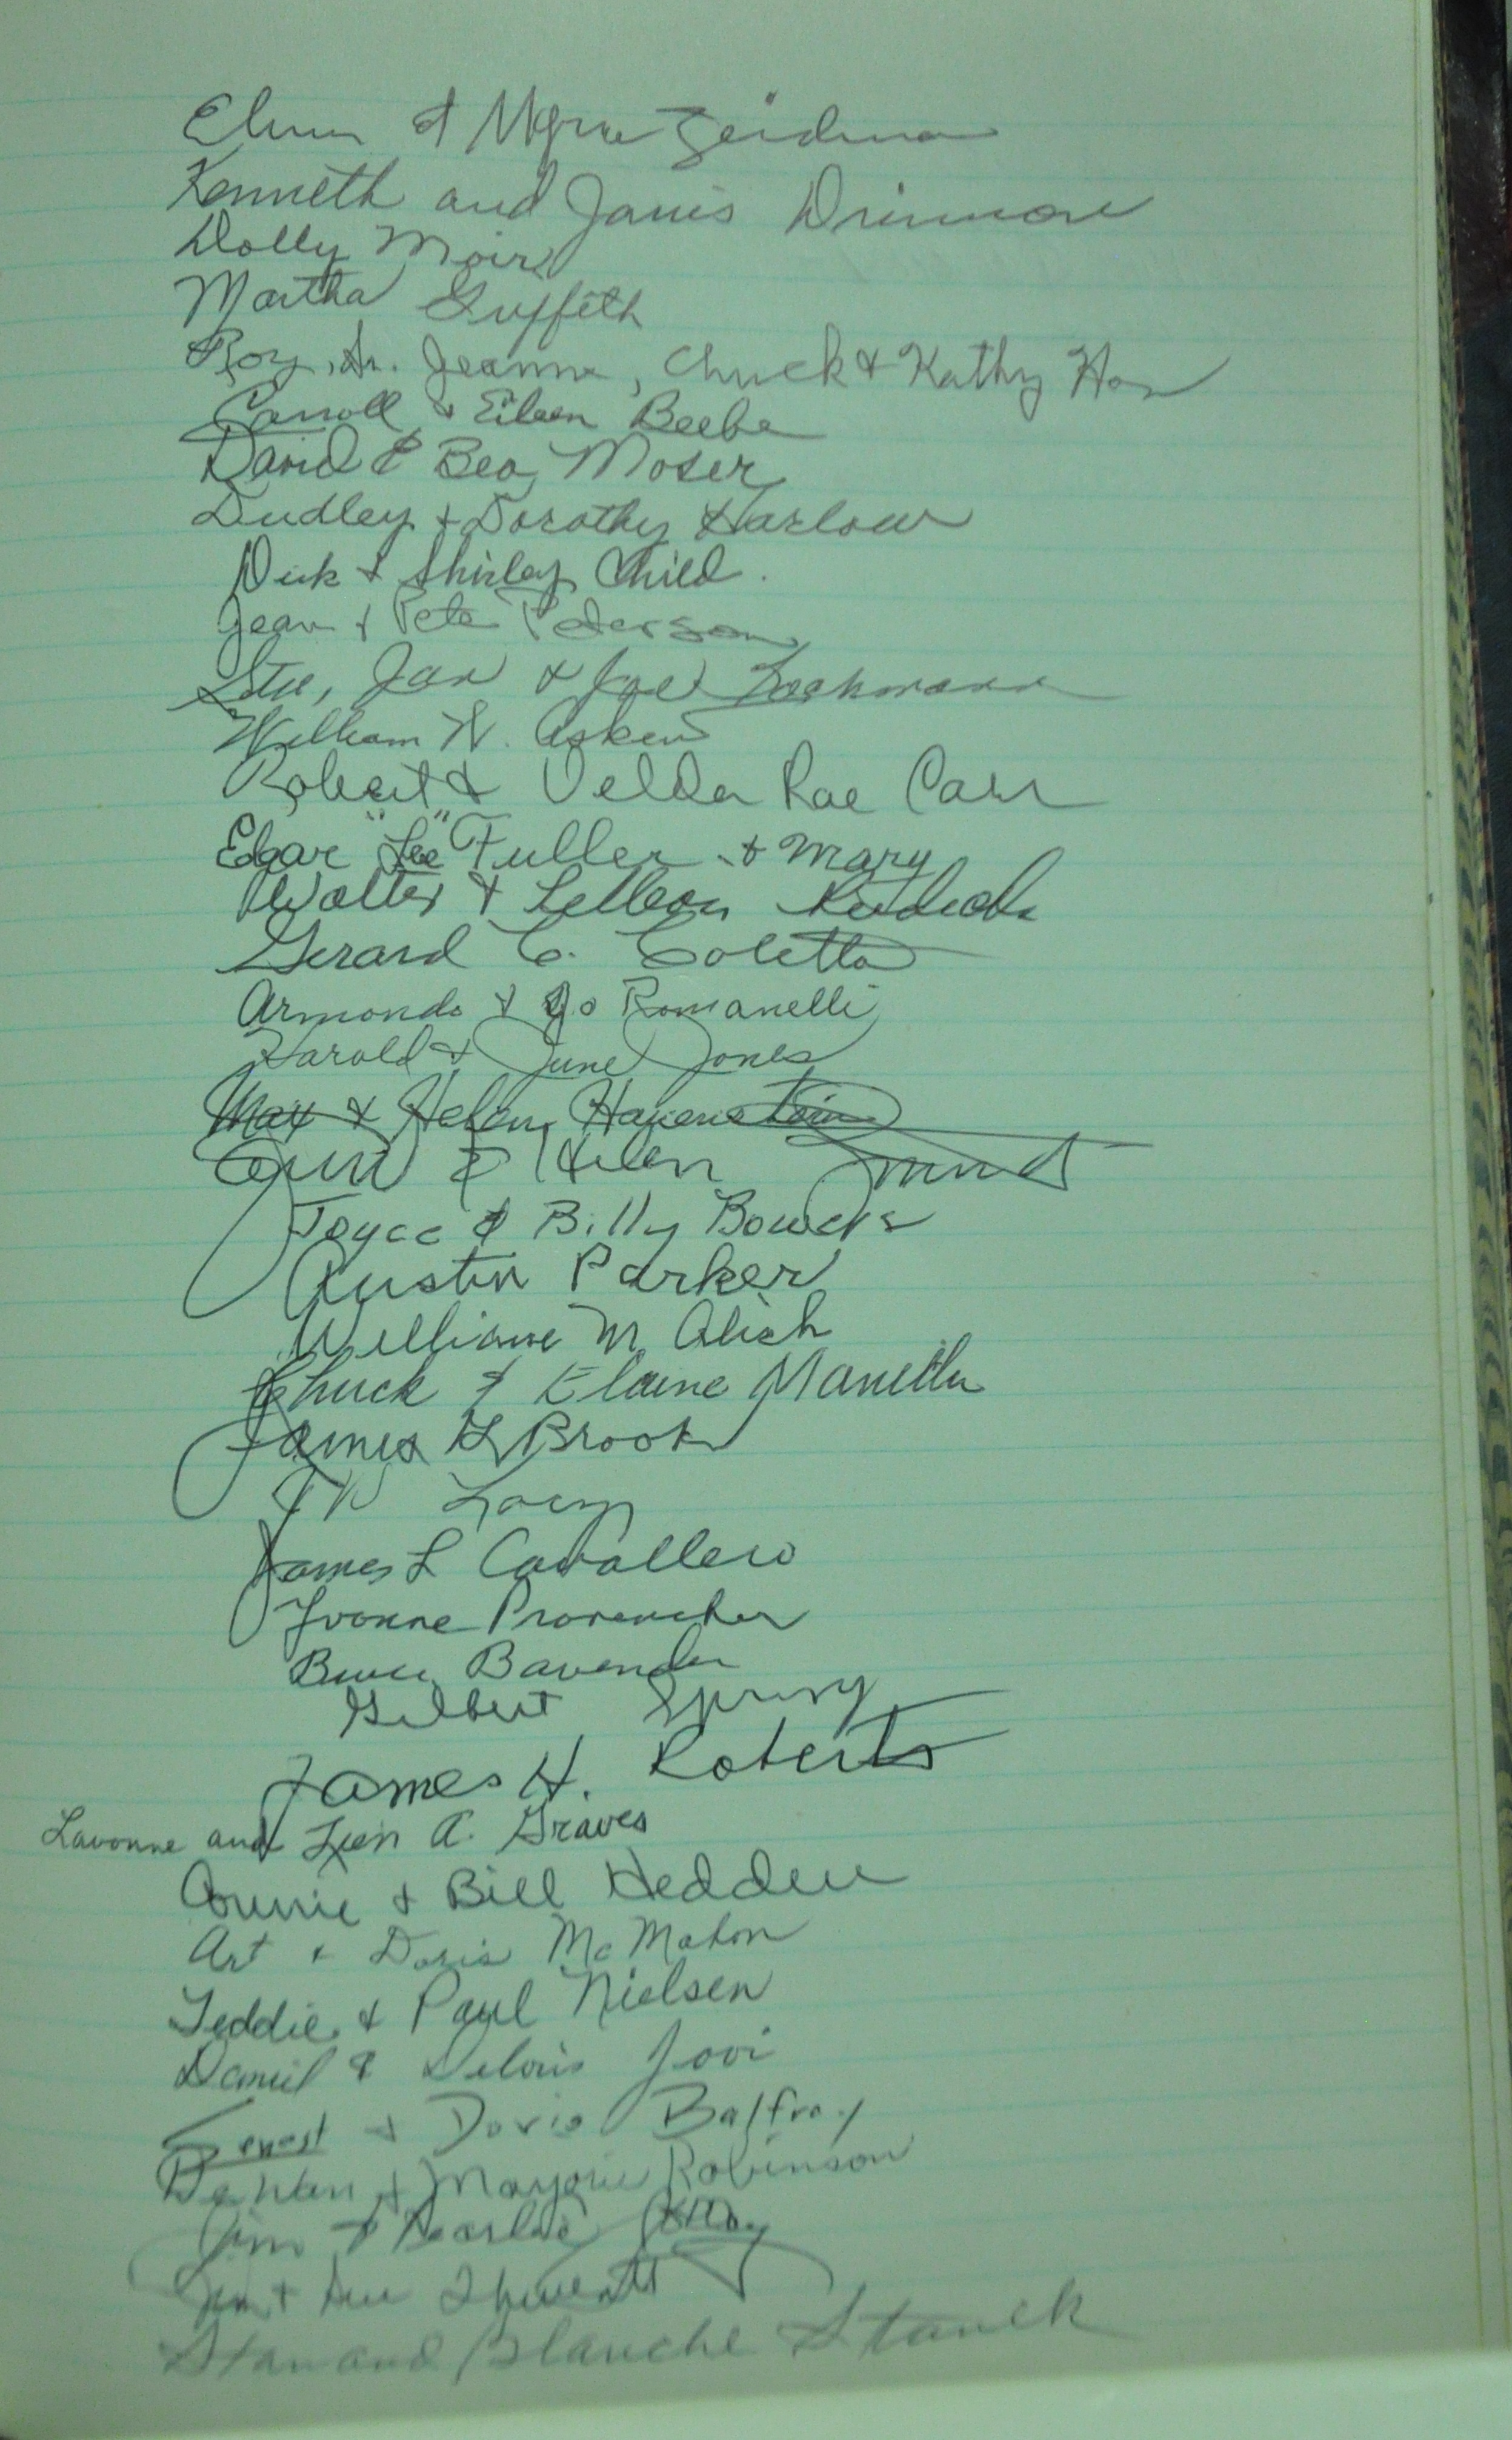 Kenneth and Janis
Dolly Moir
Martha Griffith
Roy, Sr. Jeanne, Chuck & Kathy
Carroll & Eileen Beebe
David & Bea Moser
Dudley & Dorothy Harlow
Dick & Shirley Child.
Jean & Pete Pederson
Stu, Jan & Joe
William W. Askew
Robert & Velda Rae Carr
Edgar "Lee" Fuller & Mary
Walter &
Gerard C. Coletta
Armondo & Jo Romanelli
Harold & June Jones
Max & Helen Havenstein
& Helen
Joyce & Billy Bowers
Austin Parker
William M. Alich
Chuck & Elaine
James L Brook
Lacy
James L Cavallero
Yvonne Provencher
Bruce Bavender
Gilbert Spring
James H. Roberts
Lavonne and A. Graves
Connie & Bill Hedden
Art & Doris McMahon
Teddie & Paul Nielsen
Daniel & Deloris
Ernest & Doris Balfray
& Marjorie Robinson
Jim &
Jim &
Stan and Blanche Stanek